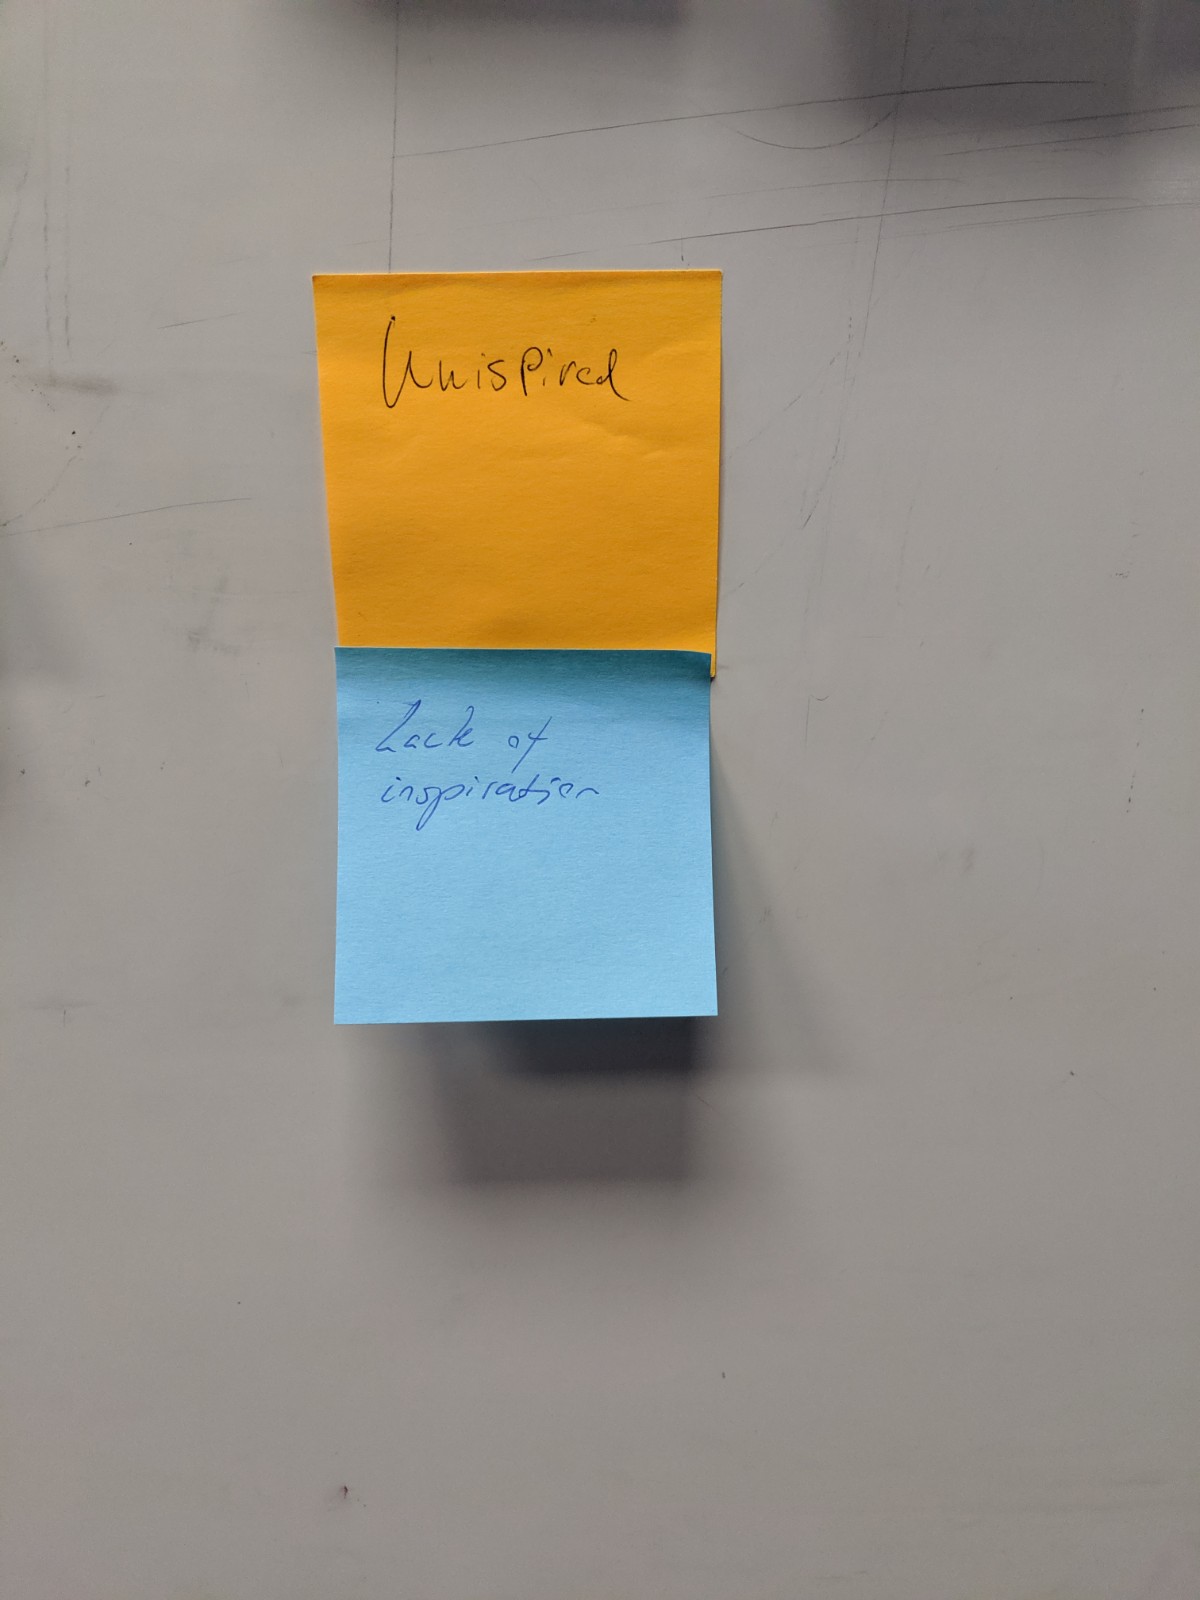 Unispired
Lack of
inspiration